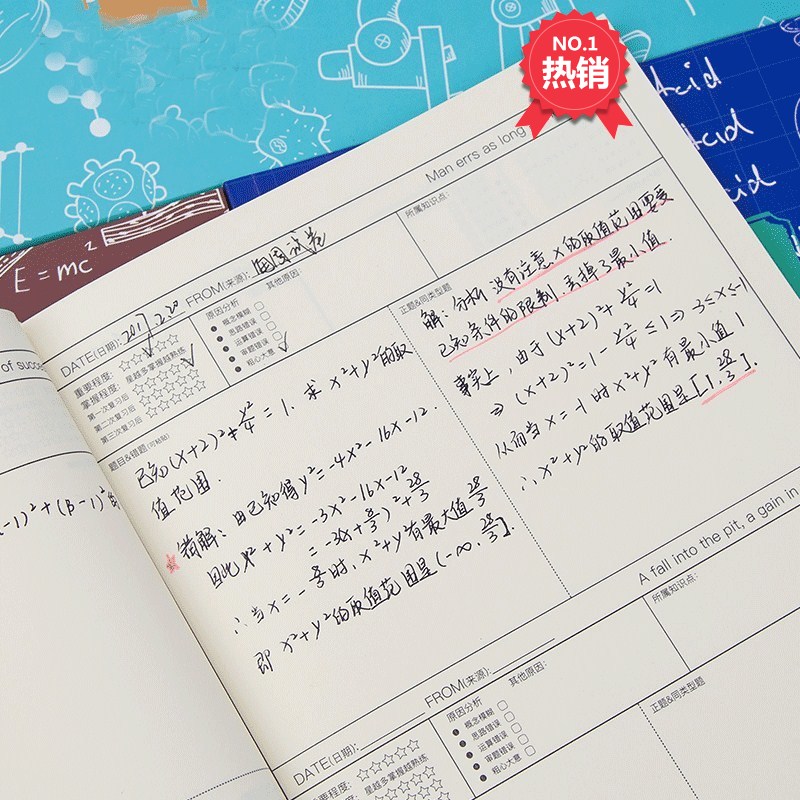 NO.1
热销
Acid
Acid
cid
E=mc²
Man errs as long
DATE(日期): 2017.2.20 FROM(来源): 周周试卷
重要程度:
掌握程度: 星越多掌握越熟练
第一次复习后
第二次复习后
第三次复习后
原因分析
概念模糊
思路错误
运算错误
审题错误
粗心大意
其他原因:
所属知识点:
题目&错题(可粘贴)
已知(x+2)²+y²/4=1. 求x²+y²的取
值范围.
错解: 由已知得y²=-4x²-16x-12.
因此x²+y²=-3x²-16x-12
=-3(x+8/3)²+28/3
∴当x=-8/3时, x²+y²有最大值28/3
即 x²+y²的取值范围是(-∞, 28/3].
正题&同类型题
解: 分析 没有注意x的取值范围要受
已知条件的限制, 丢掉了最小值.
事实上, 由于(x+2)²+y²/4=1
⇒(x+2)²=1-y²/4≤1⇒-3≤x≤-1
从而当x=-1时x²+y²有最小值1
∴x²+y²的取值范围是[1, 28/3].
of succes
-1)²+(β-1)²的
A fall into the pit, a gain in
DATE(日期): FROM(来源):
重要程度:
掌握程度: 星越多掌握越熟练
原因分析
概念模糊
思路错误
运算错误
审题错误
粗心大意
其他原因:
所属知识点:
正题&同类型题